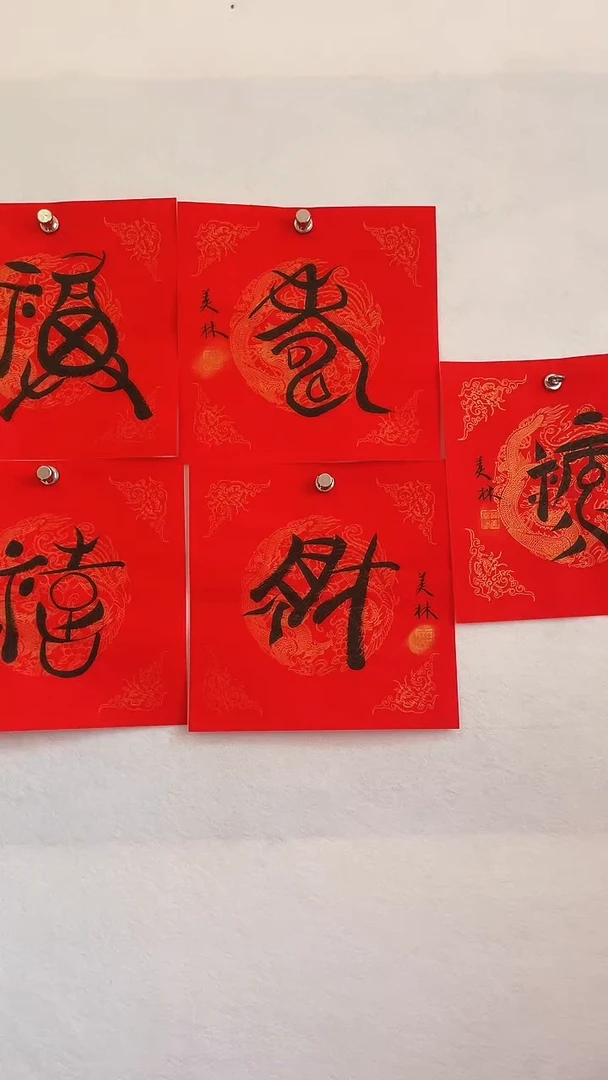 福
寿
美林
禧
财
美林
禄
美林